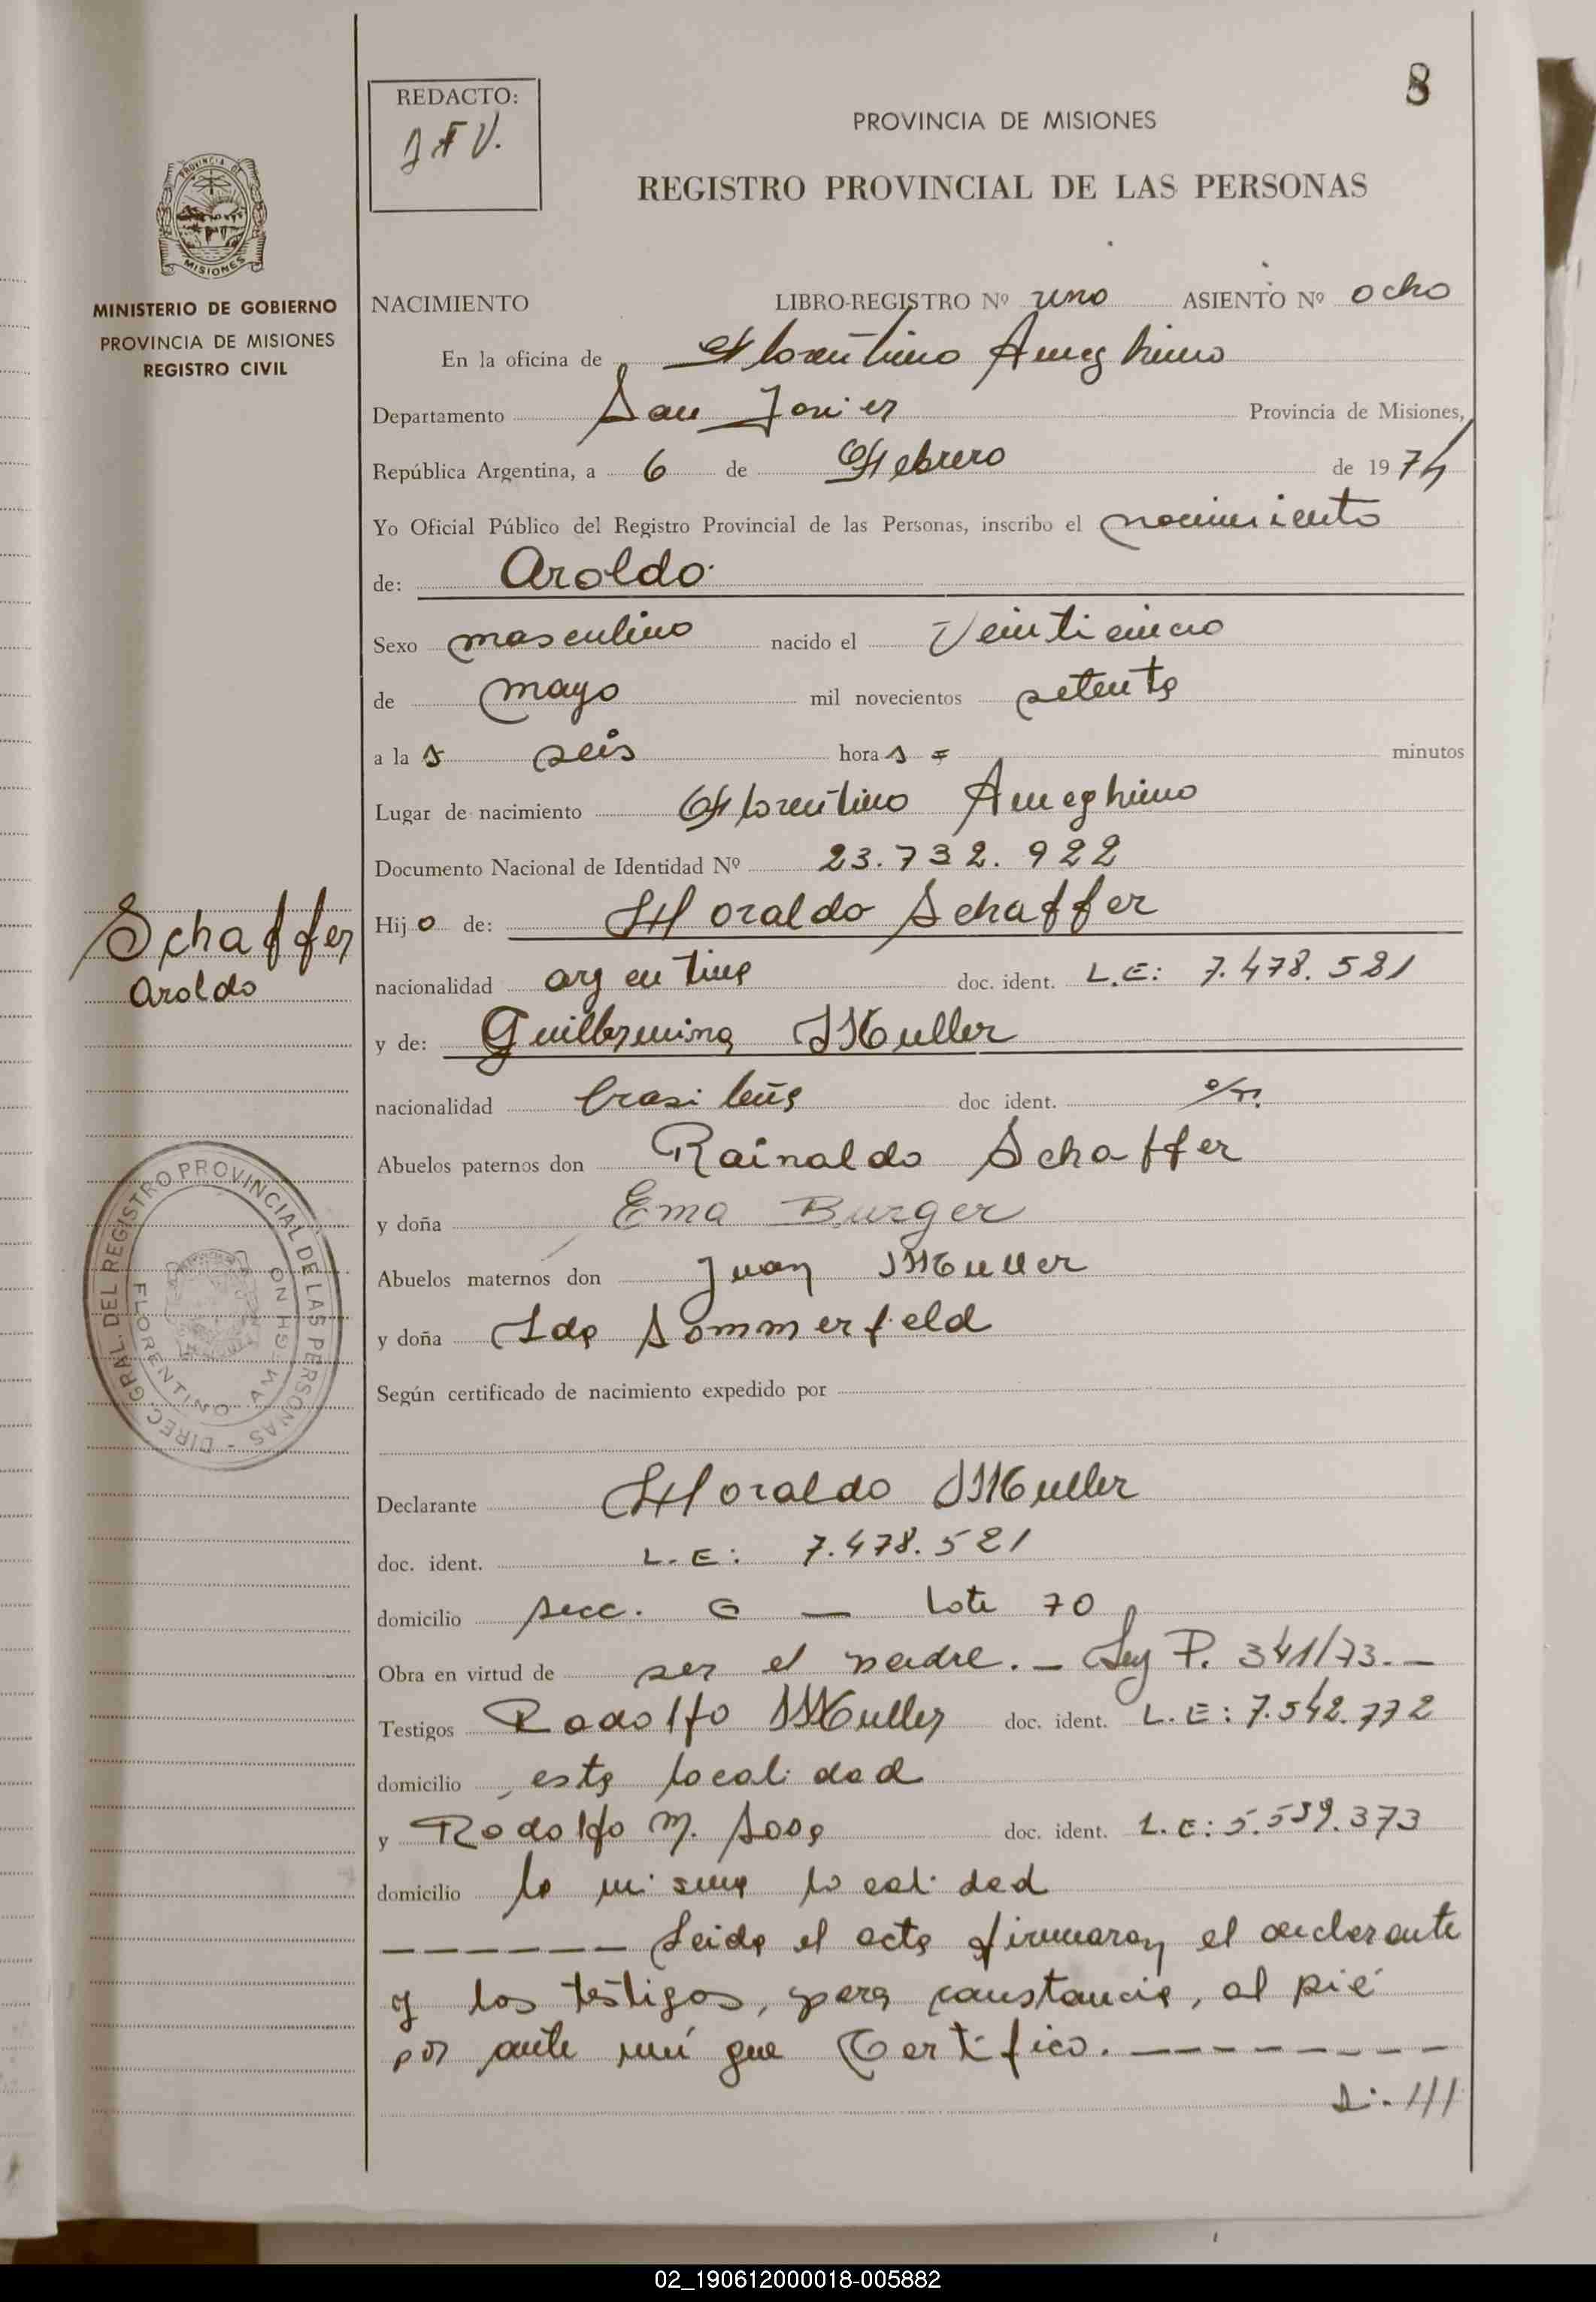 8
REDACTO:
J F V.
PROVINCIA DE MISIONES
REGISTRO PROVINCIAL DE LAS PERSONAS
PROVINCIA DE
MISIONES
MINISTERIO DE GOBIERNO
PROVINCIA DE MISIONES
REGISTRO CIVIL
NACIMIENTO LIBRO-REGISTRO Nº uno ASIENTO Nº ocho
En la oficina de Florentino Ameghino
Departamento San Javier Provincia de Misiones,
República Argentina, a 6 de Febrero de 1974
Yo Oficial Público del Registro Provincial de las Personas, inscribo el nacimiento
de: Aroldo
Sexo masculino nacido el Veinticinco
de mayo mil novecientos setenta
a la s seis hora s = minutos
Lugar de nacimiento Florentino Ameghino
Documento Nacional de Identidad Nº 23.732.922
Schaffer
Aroldo
Hijo de: Horaldo Schaffer
nacionalidad argentina doc. ident. L.E: 7.478.521
y de: Guillermina Muller
nacionalidad brasileña doc ident.
Abuelos paternos don Rainaldo Schaffer
y doña Ema Burger
Abuelos maternos don Juan Muller
y doña Ida Sommerfeld
DIREC. GRAL. DEL REGISTRO PROVINCIAL DE LAS PERSONAS -
FLORENTINO AMEGHINO
Según certificado de nacimiento expedido por
Declarante Horaldo Muller
doc. ident. L.E: 7.478.521
domicilio secc. G — Lote 70
Obra en virtud de ser el padre. — Ley P. 341/73. —
Testigos Rodolfo Muller doc. ident. L.E: 7.542.772
domicilio esta localidad
y Rodolfo M. Sosa doc. ident. L.E: 5.539.373
domicilio la misma localidad
— — — — — — Leida el acta firmaron el declarante
y los testigos, para constancia, al pié
por ante mí que Certifico. — — — — — — — —
///
02_190612000018-005882